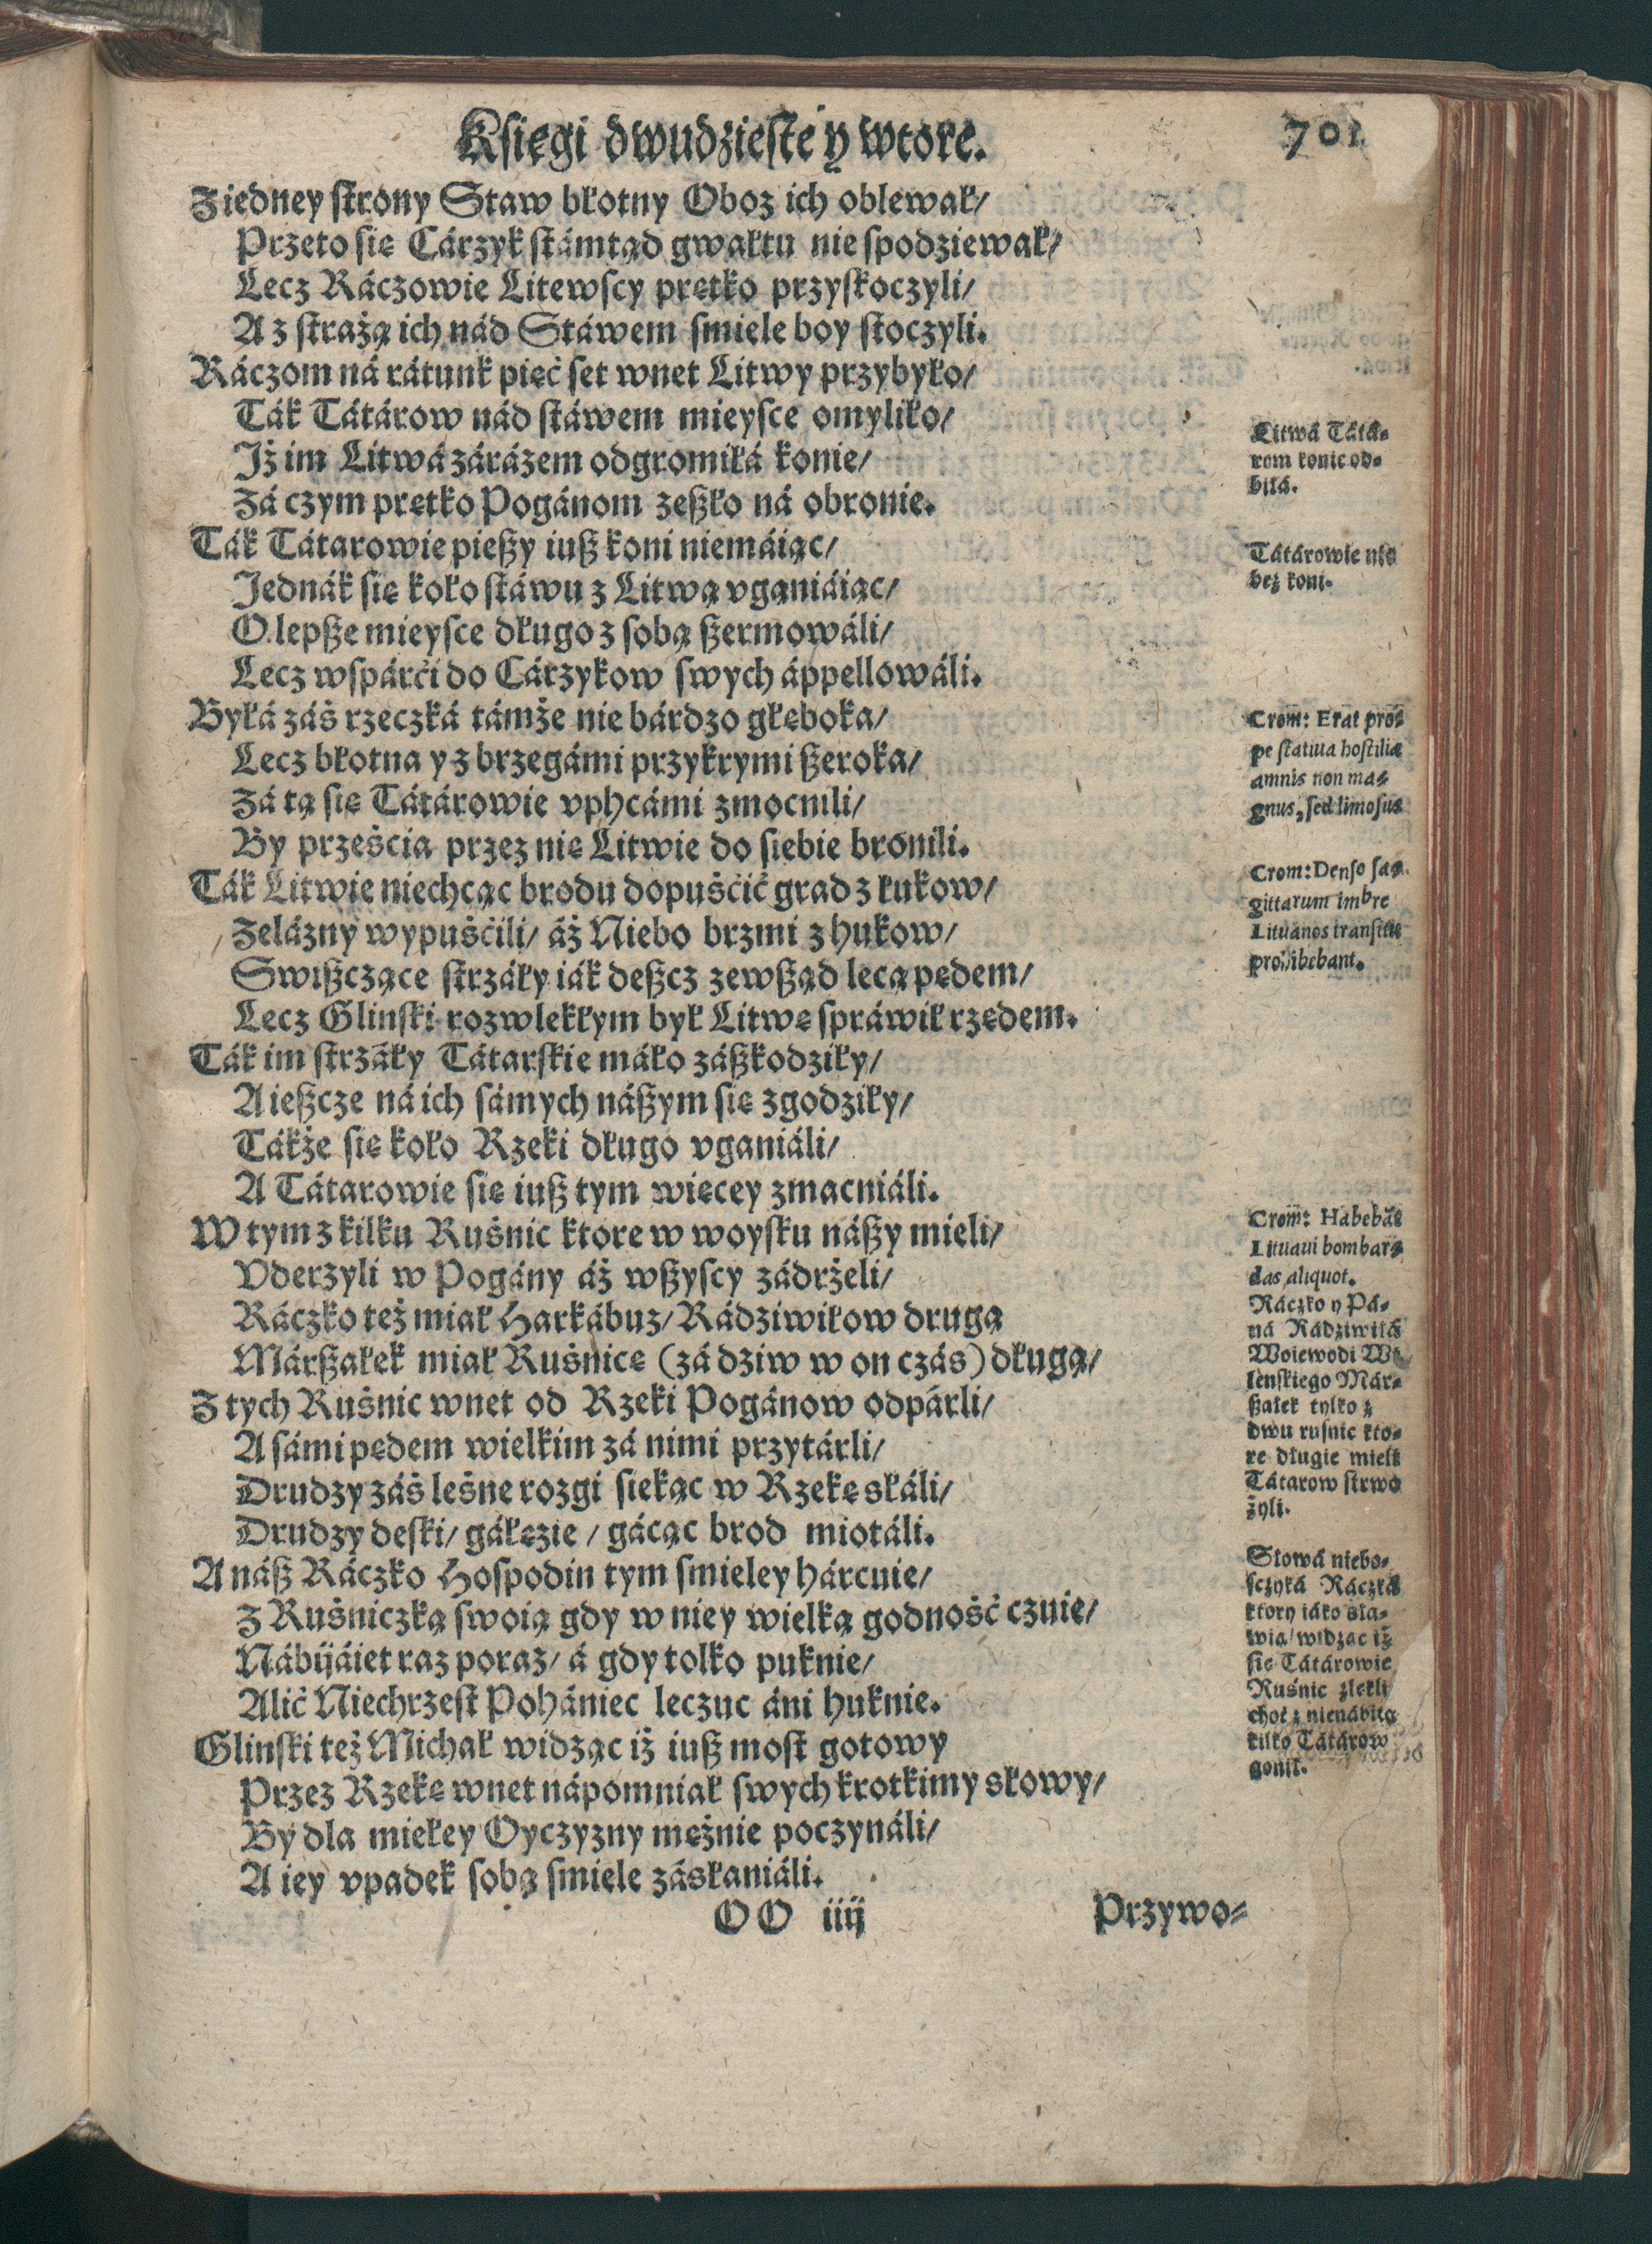 Księgi dwudzieste y wtore.
701
Z iedney strony Staw błotny Oboz ich oblewał/
Przeto się Cárzyk stámtąd gwałtu nie spodziewał/
Lecz Ráczowie Litewscy prętko przyskoczyli/
A z strażą ich nád Stáwem smiele boy stoczyli.
Ráczom ná rátunk pięć set wnet Litwy przybyło/
Ták Tátárow nád stáwem mieysce omyliło/
Iż im Litwá zárázem odgromiłá konie/
Zá czym prętko Pogánom zeszło ná obronie.
Ták Tátarowie pieszy iusz koni niemáiąc/
Jednák się koło stáwu z Litwą vganiáiąc/
O lepsze mieysce długo z sobą szermowáli/
Lecz wspárći do Cárzykow swych áppellowáli.
Byłá záś rzeczká támże nie bárdzo głęboka/
Lecz błotna y z brzegámi przykrymi szeroka/
Zá tą się Tátárowie vphcámi zmocnili/
By prześcia przez nię Litwie do siebie bronili.
Ták Litwie niechcąc brodu dopuśćić grad z łukow/
Zelázny wypuśćili/ áż Niebo brzmi z hukow/
Swiszczące strzáły iák deszcz zewsząd lecą pędem/
Lecz Glinski rozwlekłym był Litwę spráwił rzędem.
Ták im strzáły Tátarskie máło zászkodziły/
A ieszcze ná ich sámych nászym się zgodziły/
Tákże się koło Rzeki długo vganiáli/
A Tátarowie się iusz tym więcey zmacniáli.
W tym z kilku Ruśnic ktore w woysku nászy mieli/
Vderzyli w Pogány áż wszyscy zádrżeli/
Ráczko też miał Harkábuz/ Rádziwiłow drugą
Márszałek miał Ruśnicę (zá dziw w on czás) długą/
Z tych Ruśnic wnet od Rzeki Pogánow odpárli/
A sámi pędem wielkim zá nimi przytárli/
Drudzy záś leśne rozgi siekąc w Rzekę słáli/
Drudzy deski/ gáłęzie / gácąc brod miotáli.
A nász Ráczko Hospodin tym smieley hárcuie/
Z Ruśniczką swoią gdy w niey wielką godność czuie/
Nábijáiet raz poraz/ á gdy tolko puknie/
Alić Niechrzest Pohániec leczuc áni huknie.
Glinski też Michał widząc iż iusz most gotowy
Przez Rzekę wnet nápomniał swych krotkimy słowy/
By dla miłey Oyczyzny mężnie poczynáli/
A iey vpadek sobą smiele zásłaniáli.
OO iiij
Przywo-
Litwá Tátá-
rom konie od-
biłá.
Tátárowie nie
bez koni.
Crom: Erat pro-
pe statiua hostilia
amnis non ma-
gnus, sed limosus
Crom: Denso sa-
gittarum imbre
Lituanos transitu
prohibebant.
Crom: Habebāt
Lituaui bombar-
das aliquot.
Ráczko y Pá-
ná Rádziwiłá
Woiewodi Wi
lenskiego Már-
szałek tylko z
dwu rusnic kto-
re długie mieli
Tátarow strwo
żyli.
Słowá niebo-
sczyká Ráczká
ktory iáko sła-
wią/ widząc iż
się Tátárowie
Ruśnic zlekli
choć z nienábitą
kilko Tátárow
gonił.